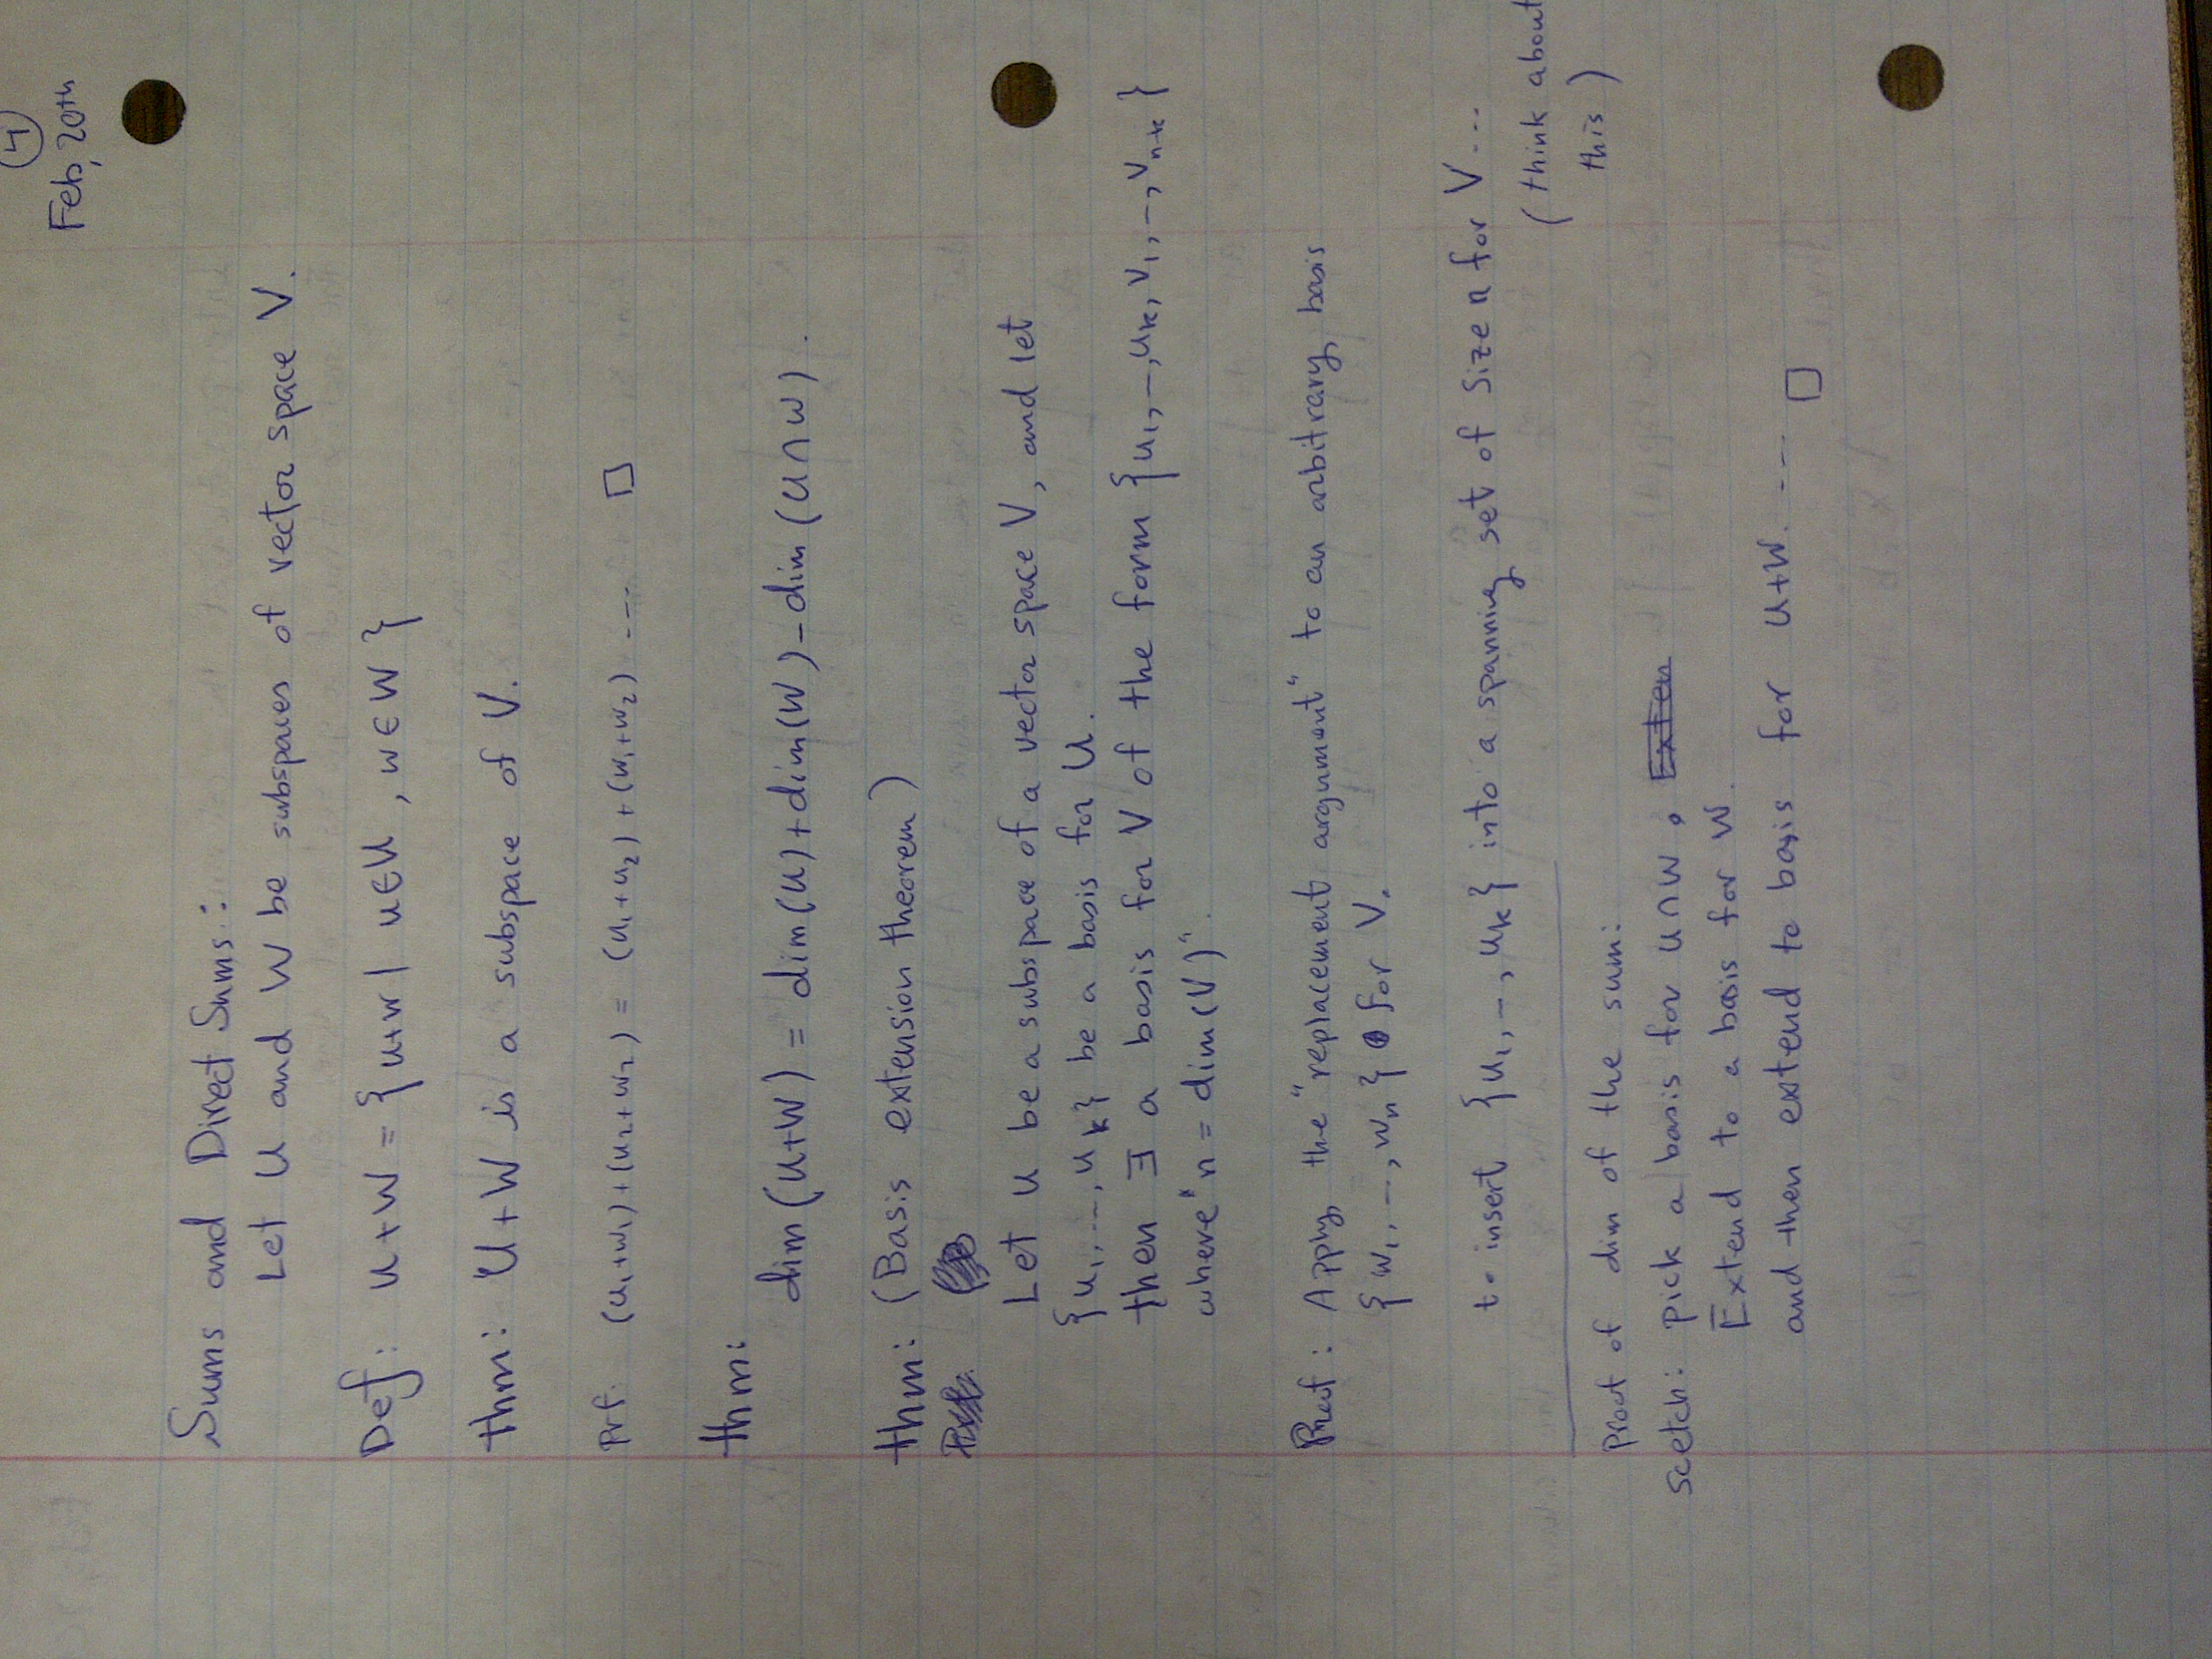 4
Feb, 20th
Sums and Direct Sums:
Let U and W be subspaces of vector space V.
Def: U+W = {u+w | u∈U, w∈W}
thm: U+W is a subspace of V.
Prf. (u₁+w₁)+(u₂+w₂) = (u₁+u₂)+(w₁+w₂) ---- □
thm:
dim(U+W) = dim(U)+dim(W)-dim(U∩W).
thm: (Basis extension theorem)
Let U be a subspace of a vector space V, and let
{u₁, ..., uₖ} be a basis for U.
then ∃ a basis for V of the form {u₁, –, uₖ, v₁, –, vₙ₋ₖ}
where "n = dim(V)".
Proof: Apply the "replacement argument" to an arbitrary basis
{w₁, –, wₙ} for V.
to insert {u₁, –, uₖ} into a spanning set of size n for V...
(think about
this)
Proof of dim of the sum:
Scetch: pick a basis for U∩W. Exten
Extend to a basis for W.
and then extend to basis for U+W. --- □